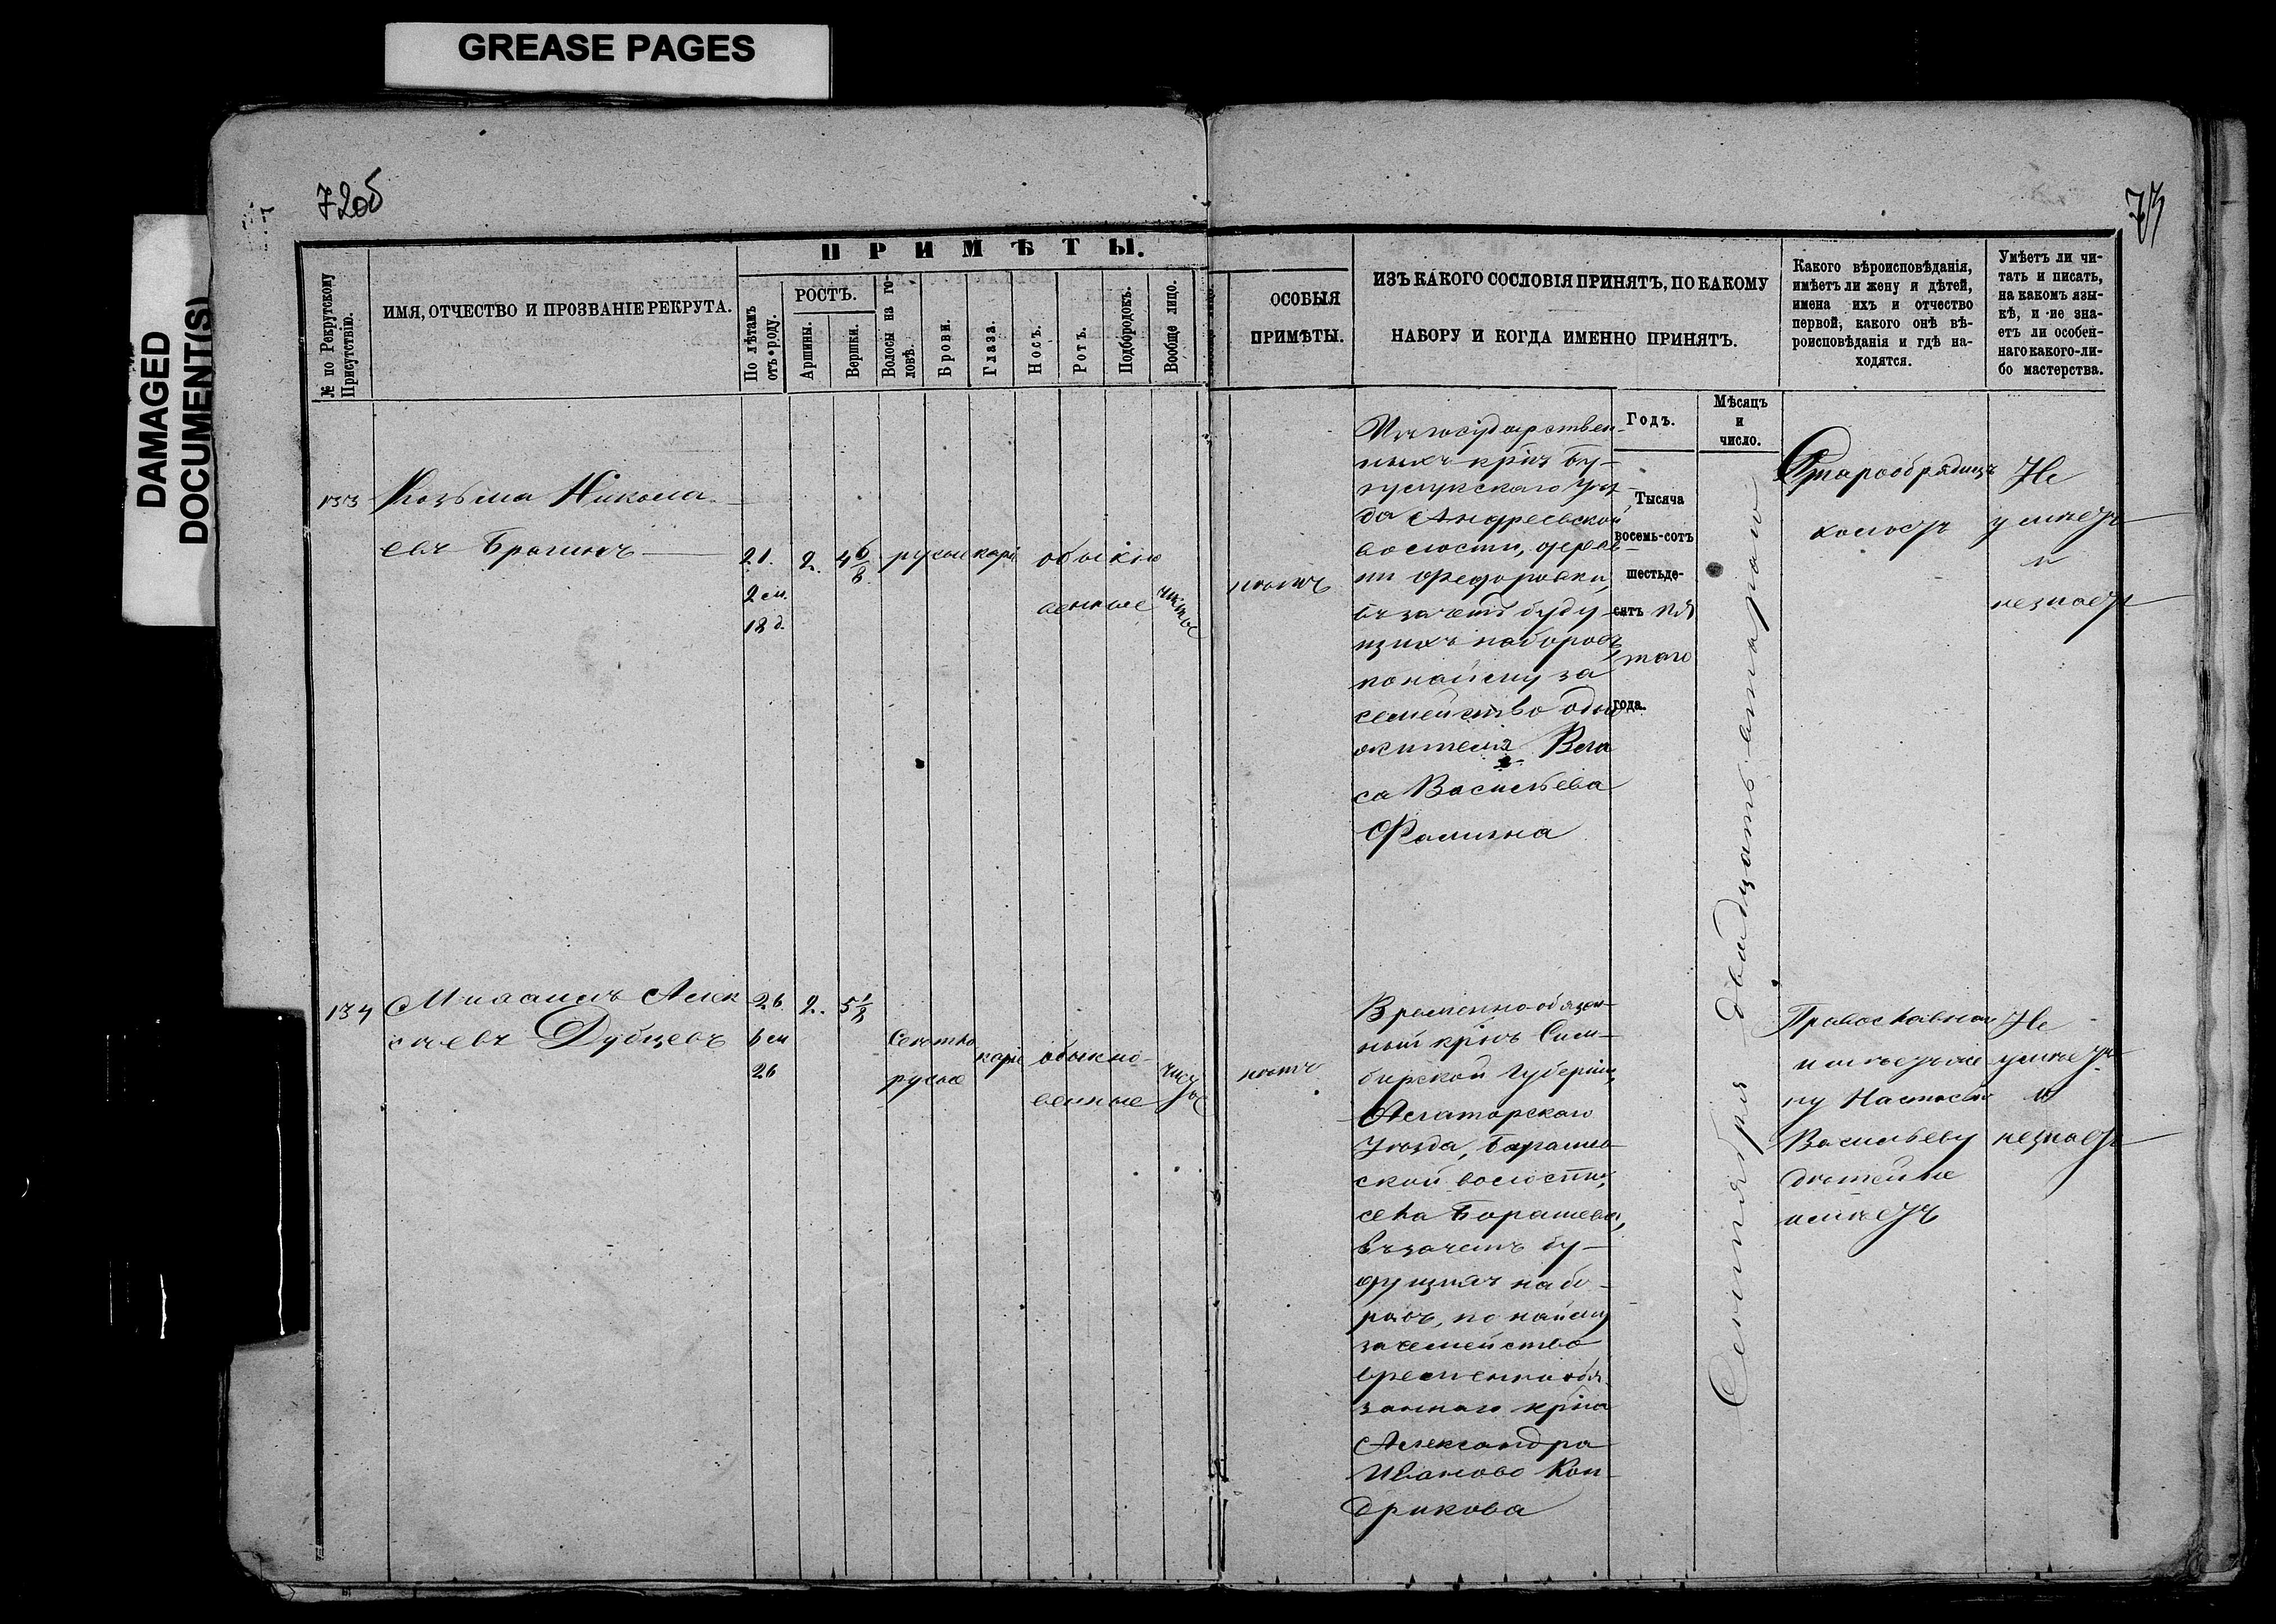 GREASE PAGES
DAMAGED
DOCUMENT(S)
72об
73
ПРИМѢТЫ.
№ по Рекрутскому Присутствію.
ИМЯ, ОТЧЕСТВО И ПРОЗВАНІЕ РЕКРУТА.
По лѣтамъ отъ роду.
РОСТЪ.
Аршины.
Вершки.
Волосы на головѣ.
Брови.
Глаза.
Носъ.
Ротъ.
Подбородокъ.
Вообще лицо.
ОСОБЫЯ
ПРИМѢТЫ.
ИЗЪ КАКОГО СОСЛОВІЯ ПРИНЯТЪ, ПО КАКОМУ
НАБОРУ И КОГДА ИМЕННО ПРИНЯТЪ.
Какого вѣроисповѣданія,
имѣетъ ли жену и дѣтей,
имена ихъ и отчество
первой, какого онѣ вѣ-
роисповѣданія и гдѣ на-
ходятся.
Умѣетъ ли чи-
тать и писать,
на какомъ язы-
кѣ, и не зна-
етъ ли особен-
наго какого-ли-
бо мастерства.
Годъ.
Мѣсяцъ
и
число.
133
Козьма Никола-
евъ Брагинъ
21.
2 м.
18 д.
2.
4 6/8
русые
карі
обыкно
венные
чистое
нѣтъ
Изъ государствен-
ныхъ кр̃нъ Бу-
гуруслкаго уѣз-
да Андреевской
волости, дерев-
ни Федоровки,
въ зачетъ буду-
щихъ наборовъ,
по найму за
семейство одно
жителя Вла
са Васильева
Фомина
Тысяча
восемь-сотъ
шестьде-
сятъ пя
таго
года.
Сентября двадцать втораго
Старообрядецъ
холостъ
Не
умѣетъ
и
незнаетъ
134
Михаилъ Алек
сѣевъ Дубцевъ
26
6 м
26
2.
5 1/8
Свѣтло
русые
каріе
обыкно-
венные
чистое
нѣтъ
Временно-обязан-
ный кр̃нъ Сим-
бирской Губерніи,
Алаторскаго
Уѣзда, Барашев-
ской волости,
села Барашева,
въ зачетъ бу-
дущихъ набо-
ровъ, по найму
за семейство
временно обя-
заннаго кр̃на
Александра
Иванова Кон-
дрикова
Православнаго
имѣетъ же
ну Настасью
Васильеву
дѣтей не
имѣетъ
Не
умѣетъ
и
незнаетъ